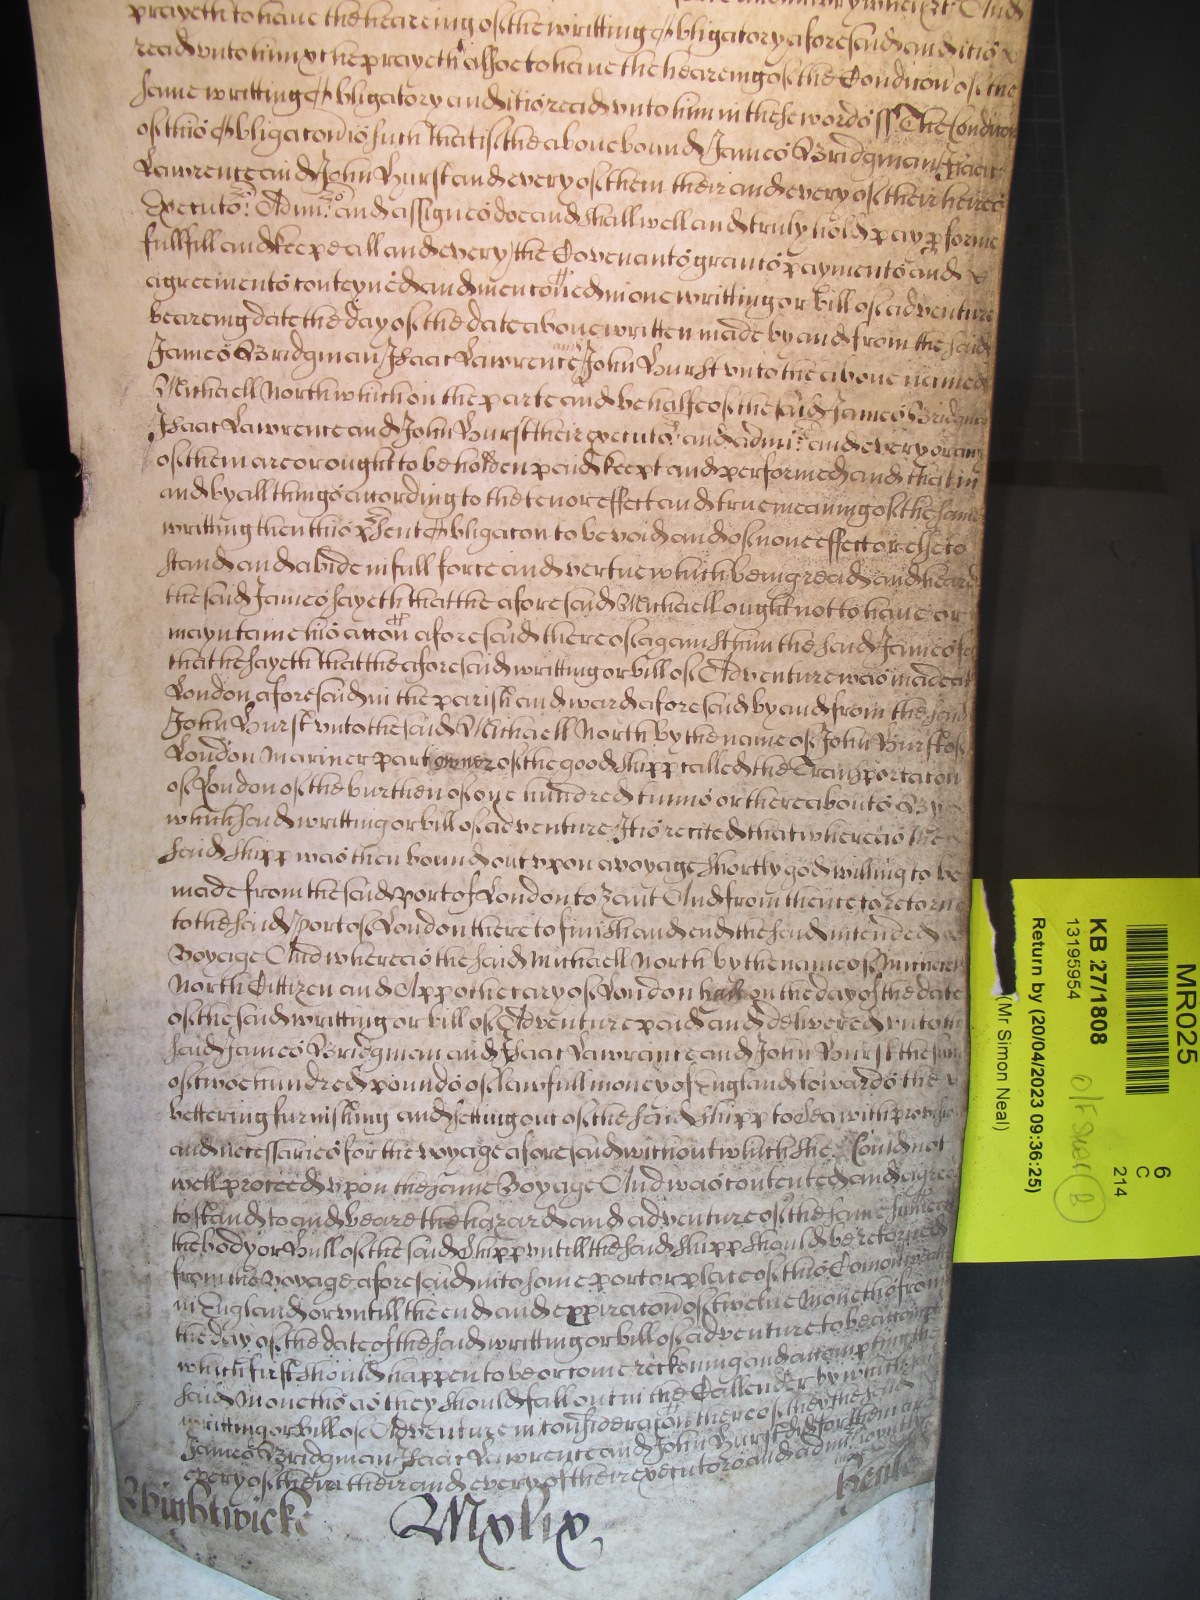 prayeth to have the heareing of the writting Obligatory aforesaid and itis
read unto him &c he prayeth alsoe to have the heareing of the Condicon of the
same writting Obligatory and itis read unto him in these words ss The Condicon
of this Obligacon is such That if the above bound James Bridgman Isaac
Lawrence and John Hurst and every of them their and every of their heires
Executors Admrs and assignes doe and shall well and truly hold pay performe
fullfill and keepe all and every the Covenants grants payments and
agreements conteyned and menconed in one writting or bill of adventure
beareing date the day of the date above written made by and from the said
James Bridgman Isaac Lawrence and John Hurst unto the above named
Michaell North which on the parte and behalfe of the said James Bridgman
Isaac Lawrence and John Hurst their executors and admrs and every or any
of them are or ought to be holden paid kept and performed and that in
and by all things according to the tenor effect and true meaning of the same
writting then this present Obligacon to be void and of none effect or else to
stand and abide in full force and vertue which being read and heard
the said James sayeth that the aforesaid Michaell ought not to have or
mayntaine his accon aforesaid thereof against him the said James for
that he sayeth that the aforesaid writting or bill of Adventure was made at
London aforesaid in the parish and ward aforesaid by and from the said
John Hurst unto the said Michaell North by the name of John Hurst of
London Mariner part owner of the good shipp called the Transportacon
of London of the burthen of one hundred tunns or thereabouts By
which said writting or bill of adventure Itis recited that whereas the
said shipp was then bound out upon a voyage shortly god willing to be
made from the said port of London to Zant And from thence to retorne
to the said port of London there to finish and end the said intended
Voyage And whereas the said Michaell North by the name of Michaell
North Cittizen and Appothecary of London hath on the day of the date
of the said writting or bill of Adventure paid and delivered unto the
said James Bridgman and Isaac Lawrance and John Hurst the sum
of twoe hundred pounds of lawfull money of England towards the
bettering furnishing and setting out of the said shipp to Sea with provision
and necessaries for the voyage aforesaid without which she Could not
well proceed upon the same Voyage And was contented and agreed
to stand to and beare the hazard and adventure of the same
the body or Hull of the said Shipp untill the said shipp should be retorned
from the voyage aforesaid into some port or place of this Comonwealth
in England or untill the end and expiracon of twelve moneths from
the day of the date of the said writting or bill of adventure to be accompted
which first should happen to be or come reckoning and accompting the
said moneths as they should fall out in the Callender by which
writting or bill of Adventure in consideracon thereof they the said
James Bridgman Isaac Lawrence and John Hurst did for them and
every of them their and every of their executors and admrs
Wightwicke Mxlix